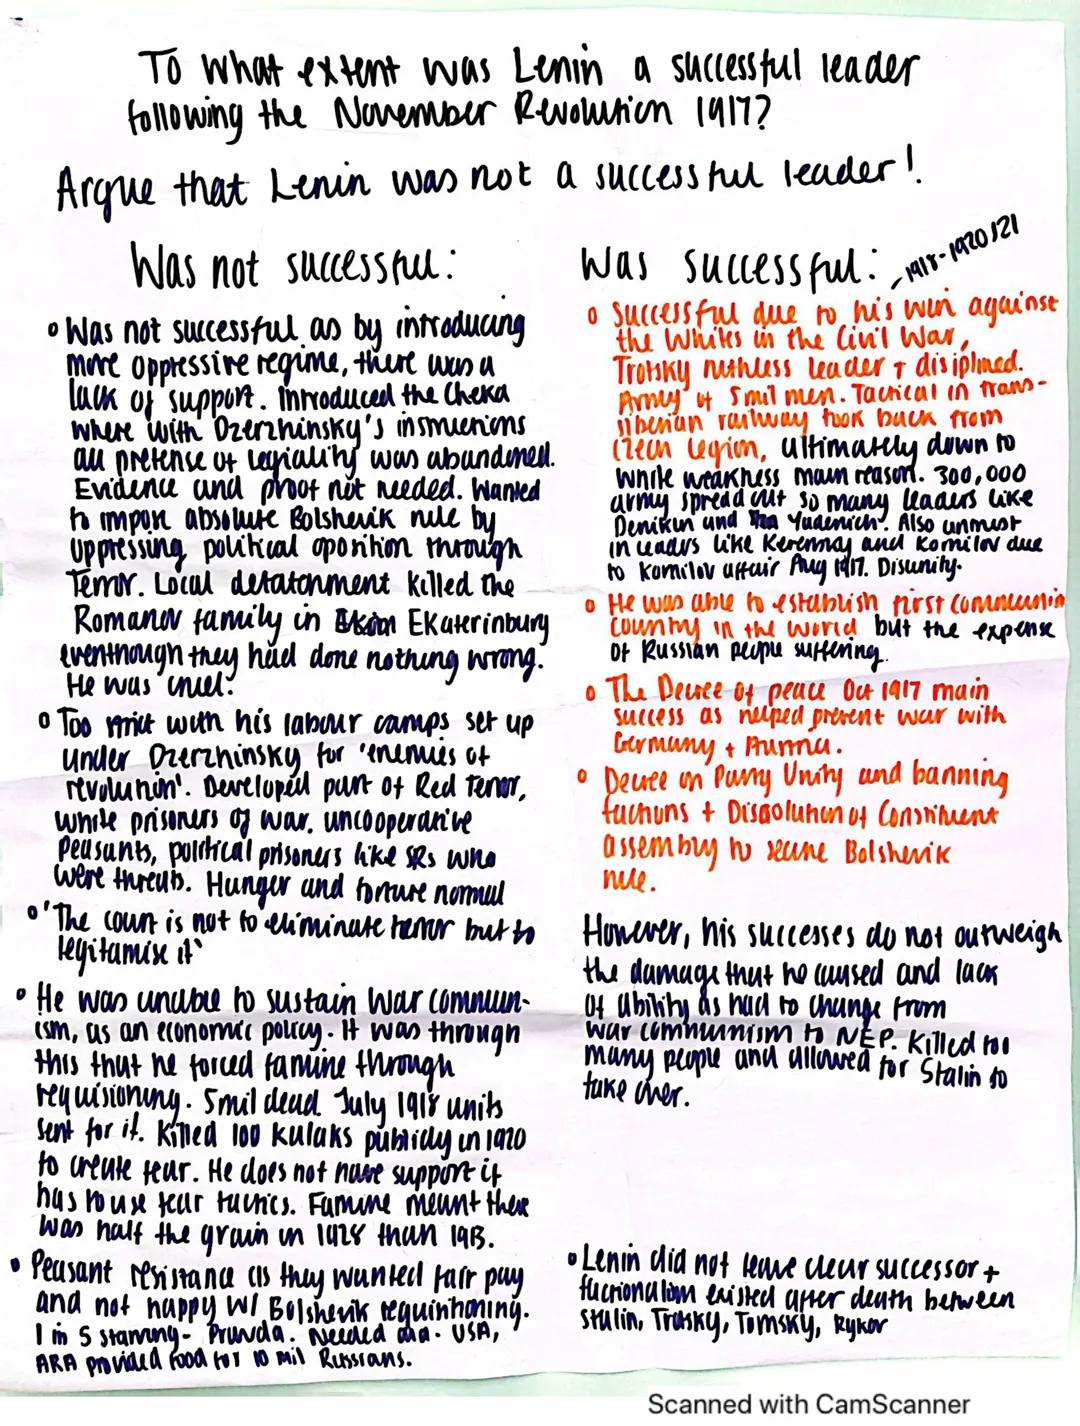 To what extent was Lenin a successful leader
following the November Revolution 1917?
Argue that Lenin was not a successful leader!
Was not successful:
• Was not successful as by introducing
more oppressive regime, there was a
lack of support. Introduced the Cheka
where with Dzerzhinsky's
all pretense of was abandoned.
Evidence and proof not needed. Wanted
to absolute Bolshevik rule by
oppressing political through
Terror. Local killed the
Romanov family in Ekaterinburg
they had done nothing wrong.
He was cruel.
• Too strict with his labour camps set up
under Dzerzhinsky for 'enemies of
. Developed part of Red Terror,
white prisoners of war, uncooperative
peasants, political prisoners like SRs who
were threats. Hunger and torture normal
• 'The court is not to eliminate terror but to
legitamise it'
• He was unable to sustain War commun-
ism, as an economic policy. It was through
this that he forced famine through
requisioning. 5 mil dead. July 1918 units
sent for it. Killed 100 kulaks publicly in 1920
to create fear. He does not have support if
has to use fear tactics. Famine meant there
was half the grain in than 1913.
• Peasant resistance as they wanted fair pay
and not happy w/ Bolshevik
1 in 5 starving - Pravda. Needed aid. USA,
ARA provided food for 10 mil Russians.
Was successful: 1918-1920/21
• Successful due to his win against
the Whites in the Civil War,
Trotsky ruthless leader + disiplined.
Army of 5 mil men. Tactical in trans-
siberian railway took back from
Czech Legion, ultimately down to
white weakness main reason. 300,000
army spread out so many leaders like
Denikin and Yudenich. Also
in leaders like and Kornilov due
to Kornilov affair Aug 1917. Disunity.
• He was able to establish first
country in the world but the expense
of Russian people suffering.
• The Decree of peace Oct 1917 main
success as helped prevent war with
Germany + .
• Decree on Party Unity and banning
factions + of Constituent
assembly to secure Bolshevik
rule.
However, his successes do not outweigh
the damage that he caused and lack
of ability as had to change from
war communism to NEP. Killed too
many people and allowed for Stalin to
take over.
• Lenin did not leave clear successor +
factionalism existed after death between
Stalin, Trotsky, Tomsky, Rykov
Scanned with CamScanner